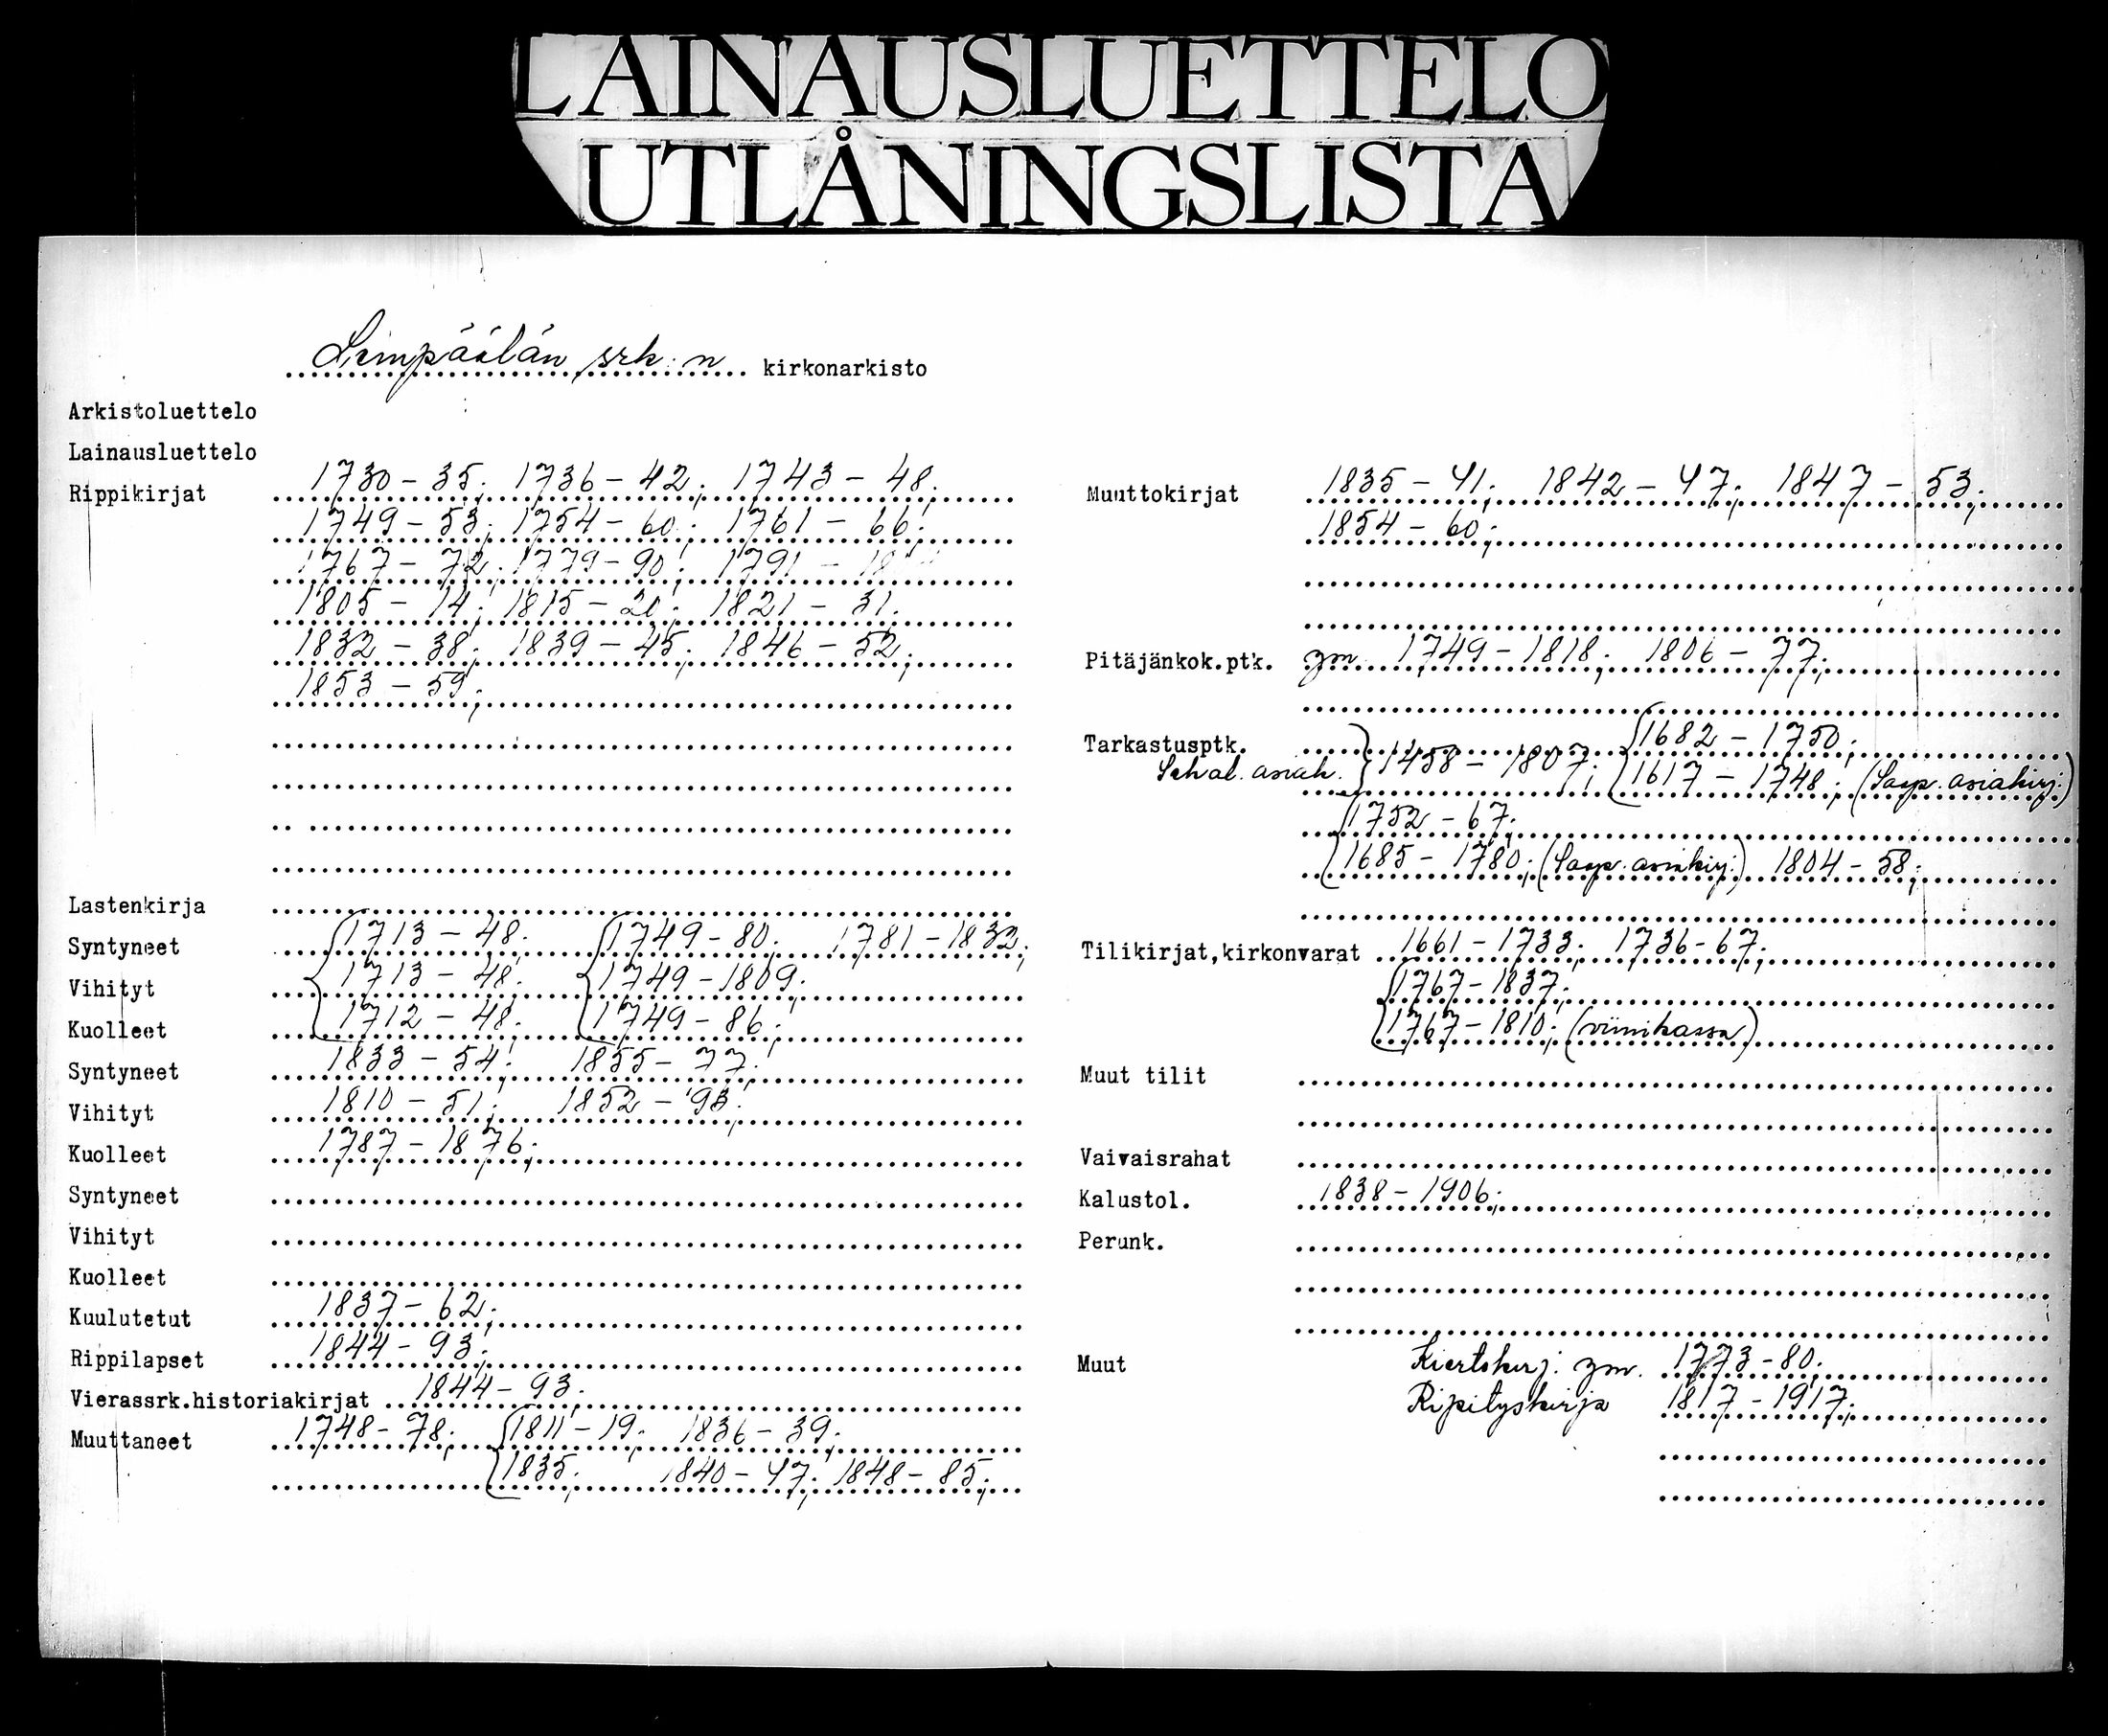 LAINAUSLUETTELO
UTLÅNINGSLISTA
Lempäälän srk:n kirkonarkisto
Arkistoluettelo
Lainausluettelo
Rippikirjat 1730 - 35; 1736 - 42; 1743 - 48;
1749 - 53; 1754 - 60; 1761 - 66;
1767 - 72; 1779 - 90; 1791 -
1805 - 14; 1815 - 20; 1821 - 31;
1832 - 38; 1839 - 45; 1846 - 52;
1853 - 59;
Lastenkirja
Syntyneet 1713 - 48; 1749 - 80; 1781 - 1832;
Vihityt 1713 - 48; 1749 - 1809;
Kuolleet 1712 - 48; 1749 - 86;
Syntyneet 1833 - 54; 1855 - 77;
Vihityt 1810 - 51; 1852 - 93;
Kuolleet 1787 - 1876;
Syntyneet
Vihityt
Kuolleet
Kuulutetut 1837 - 62;
Rippilapset 1844 - 93;
Vierassrk.historiakirjat 1844 - 93;
Muuttaneet 1748 - 78; 1811 - 19; 1836 - 39;
1835; 1840 - 47; 1848 - 85;
Muuttokirjat 1835 - 41; 1842 - 47; 1847 - 53;
1854 - 60;
Pitäjänkok.ptk. ym. 1749 - 1818; 1806 - 77;
Tarkastusptk. 1682 - 1750;
Sekal. asiak. 1458 - 1807; 1617 - 1748; (Saap. asiakirj.)
1752 - 67;
1685 - 1780; (Saap. asiakirj.) 1804 - 58;
Tilikirjat,kirkonvarat 1661 - 1733; 1736 - 67;
1767 - 1837;
1767 - 1810; (viinikassa)
Muut tilit
Vaivaisrahat
Kalustol. 1838 - 1906;
Perunk.
Muut Kiertokirj. ym. 1773 - 80;
Ripityskirja 1817 - 1917;